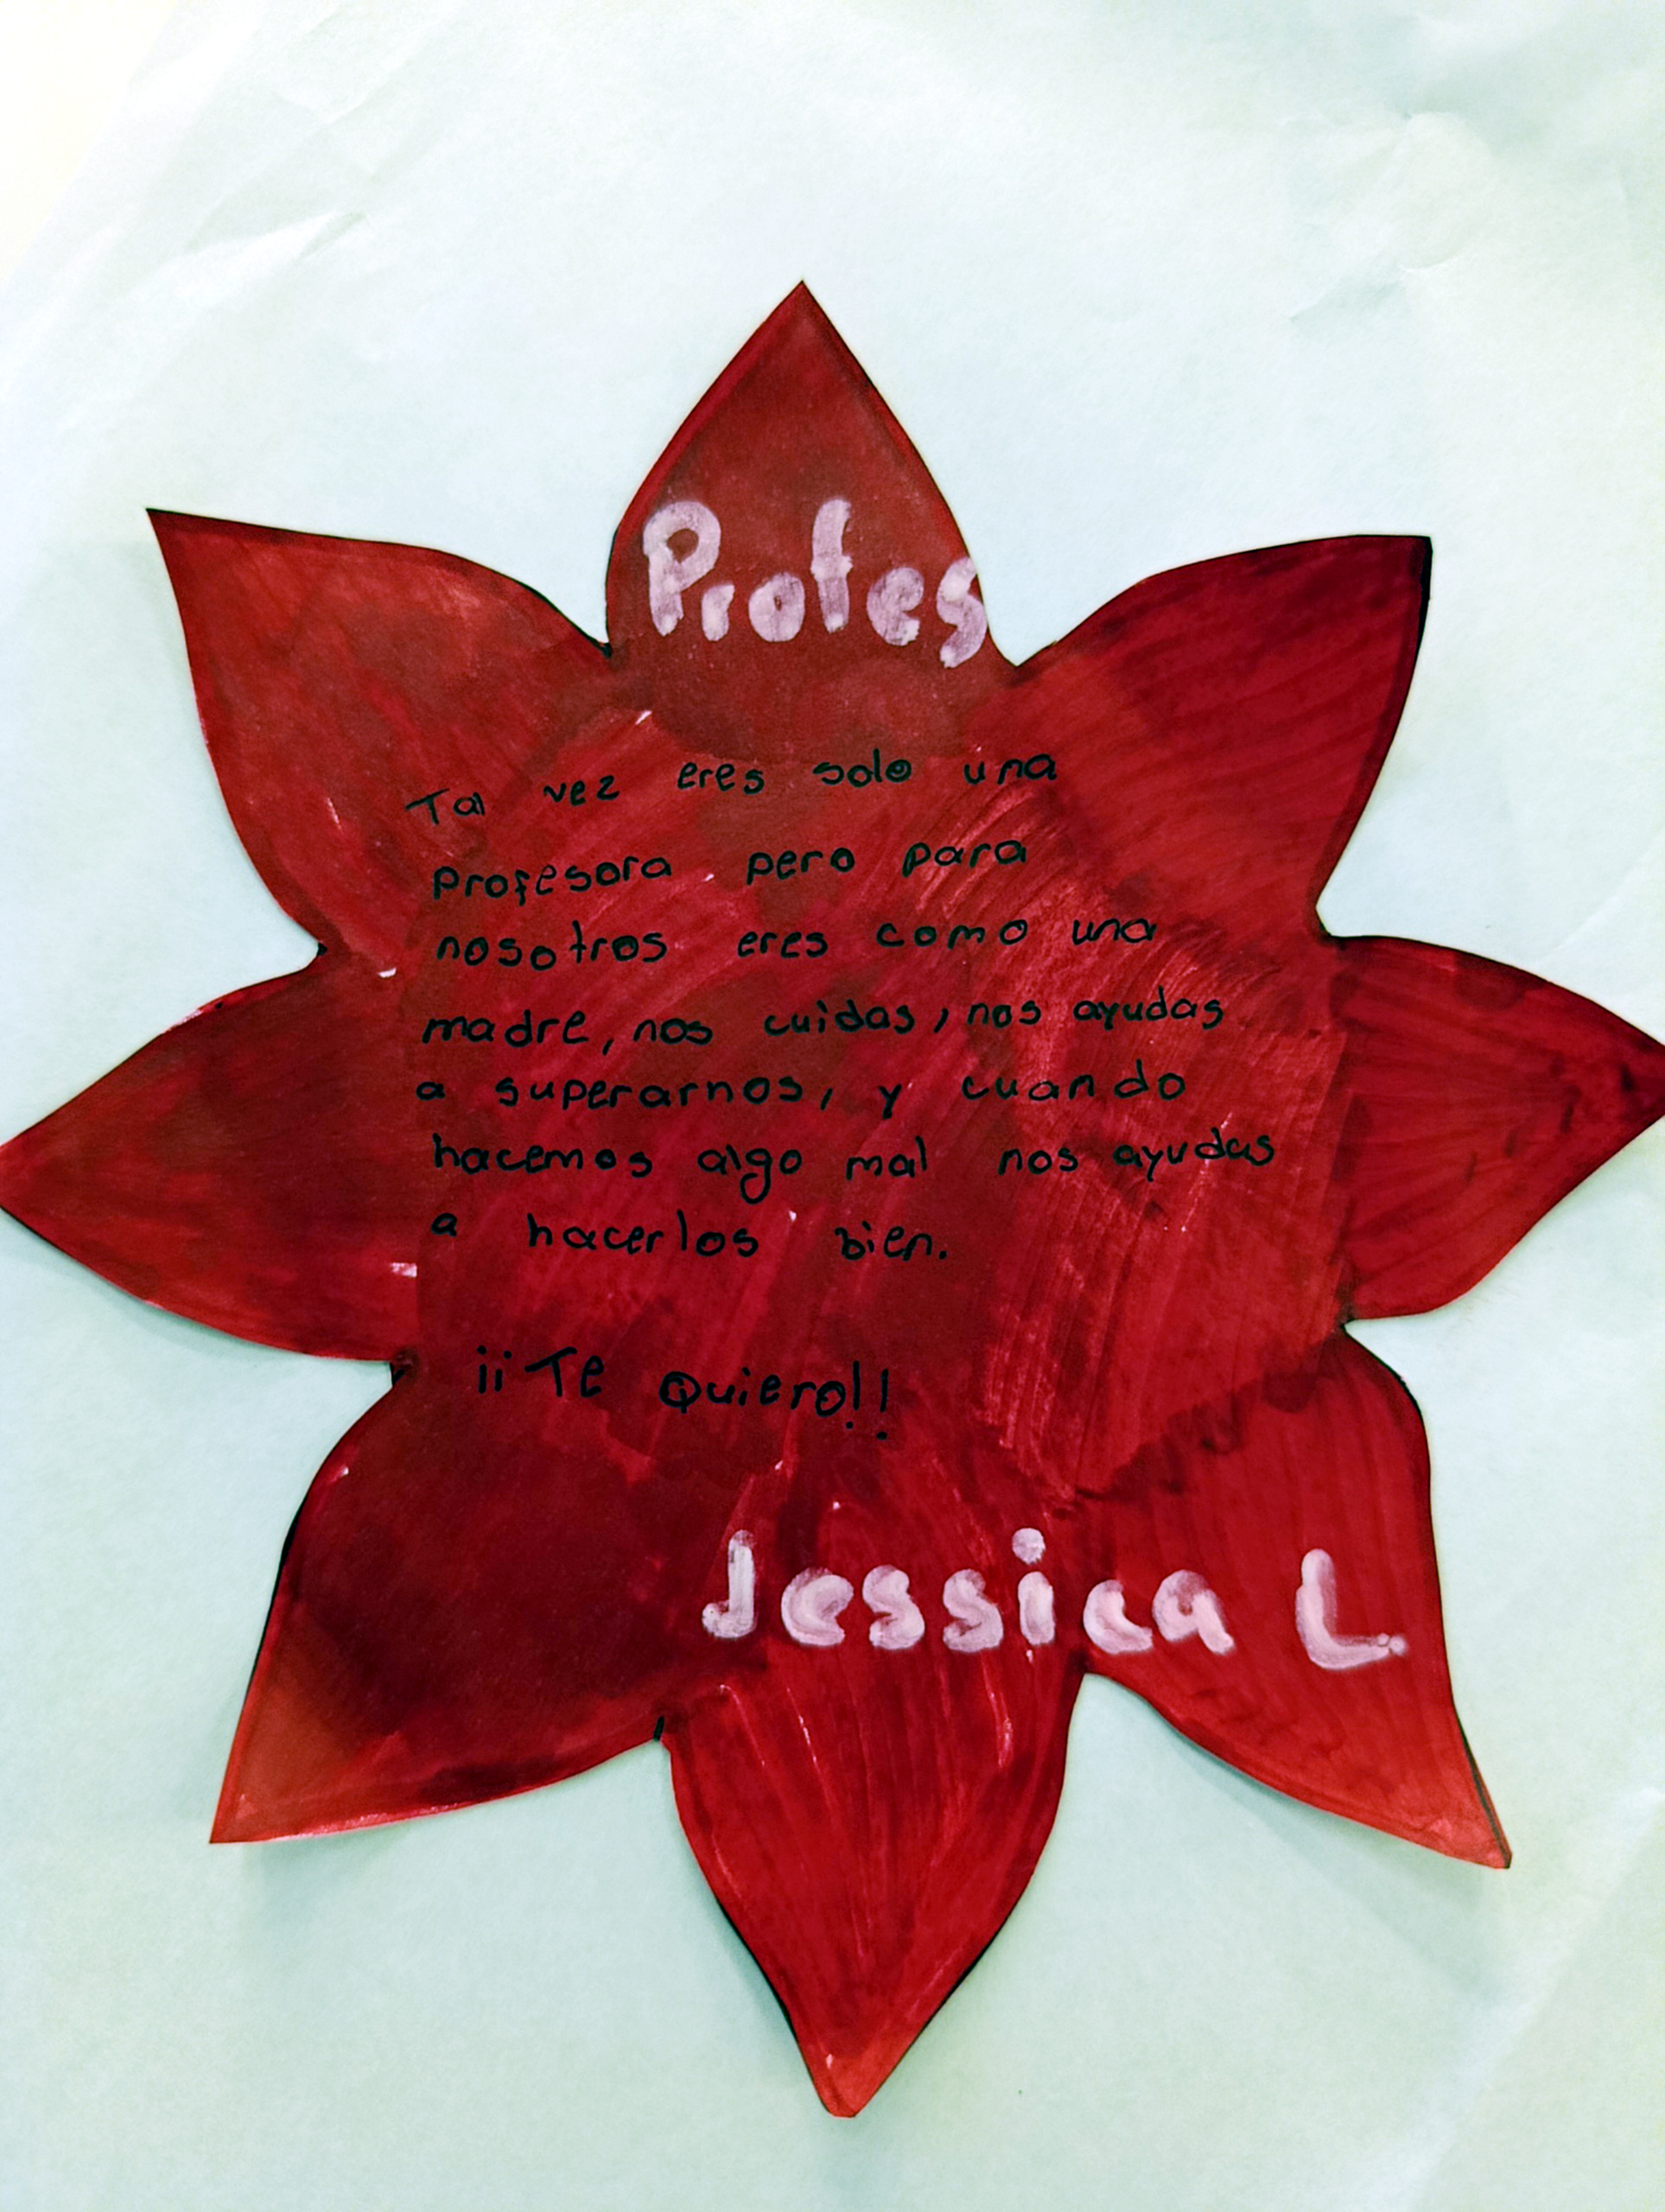 Profes
Tal vez eres solo una
profesora pero para
nosotros eres como una
madre, nos cuidas, nos ayudas
a superarnos, y cuando
hacemos algo mal nos ayudas
a hacerlos bien.
¡¡Te Quiero!!
Jessica L.